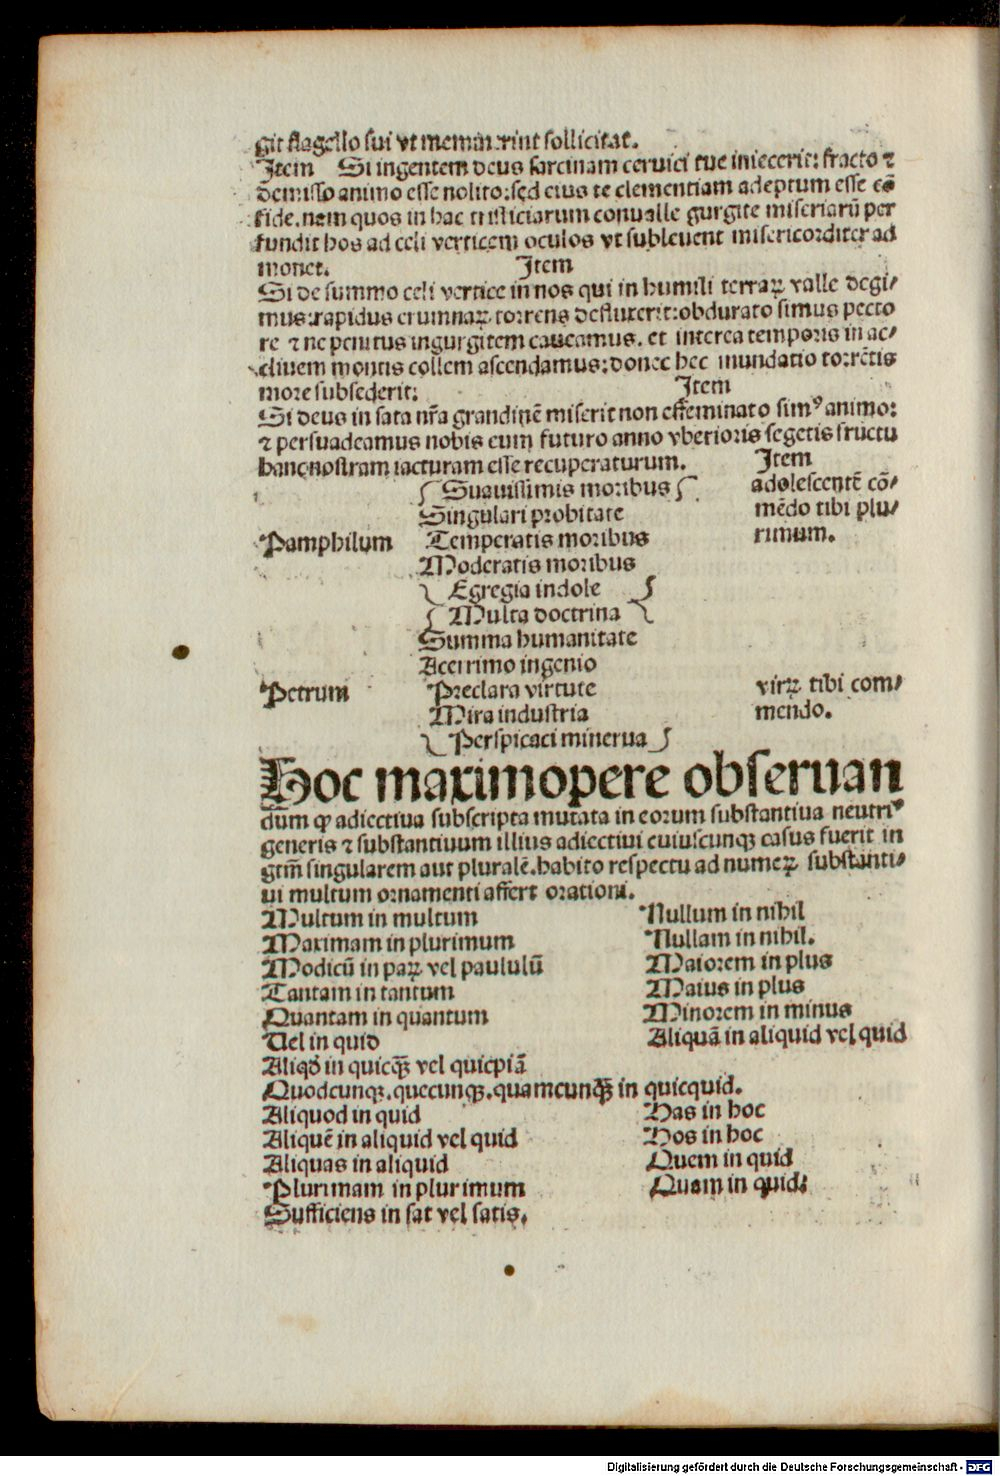 git flagello sui vt meminerint sollicitat.
Item Si ingentem deus sarcinam ceruici tue iniecerit: fracto ⁊
demisso animo esse nolito: sed eius te clementiam adeptum esse cō
fide. nam quos in hac tristiciarum conualle gurgite miseriarū per
fundit hos ad celi verticem oculos vt subleuent misericorditer ad
monet. Item
Si de summo celi vertice in nos qui in humili terraꝝ valle degi/
mus: rapidus erumnaꝝ torrens defluxerit: obdurato simus pecto
re ⁊ ne penitus ingurgitem caueamus. et interea temporis in ac/
cliuem montis collem ascendamus: donec hec inundatio torrētis
more subsederit: Item
Si deus in sata nr̄a grandinē miserit non effeminato simꝰ animo:
⁊ persuadeamus nobis eum futuro anno vberioris segetis fructu
hanc nostram iacturam esse recuperaturum. Item
Suauissimis moribus adolescentē cō/
Singulari probitate mēdo tibi plu/
Pamphilum Temperatis moribus rimum.
Moderatis moribus
Egregia indole
Multa doctrina
Summa humanitate
Acerrimo ingenio
Petrum Preclara virtute virꝝ tibi com/
Mira industria mendo.
Perspicaci minerua
Hoc maximopere obseruan
dum ꝙ adiectiua subscripta mutata in eorum substantiua neutriꝰ
generis ⁊ substantiuum illius adiectiui cuiuscunqꝫ casus fuerit in
gtm̄ singularem aut pluralē. habito respectu ad numeꝝ substanti/
ui multum ornamenti affert orationi.
Multum in multum Nullum in nihil
Maximam in plurimum Nullam in nihil.
Modicū in paꝝ vel paululū Maiorem in plus
Tantam in tantum Maius in plus
Quantam in quantum Minorem in minus
Uel in quid Aliquā in aliquid vel quid
Aliqd̄ in quicqꝫ vel quicpiā
Quodcunqꝫ. quecunqꝫ. quamcunqꝫ in quicquid.
Aliquod in quid Has in hoc
Aliquē in aliquid vel quid Hos in hoc
Aliquas in aliquid Quem in quid
Plurimam in plurimum Quam in quid:
Sufficiens in sat vel satis.
Digitalisierung gefördert durch die Deutsche Forschungsgemeinschaft - DFG